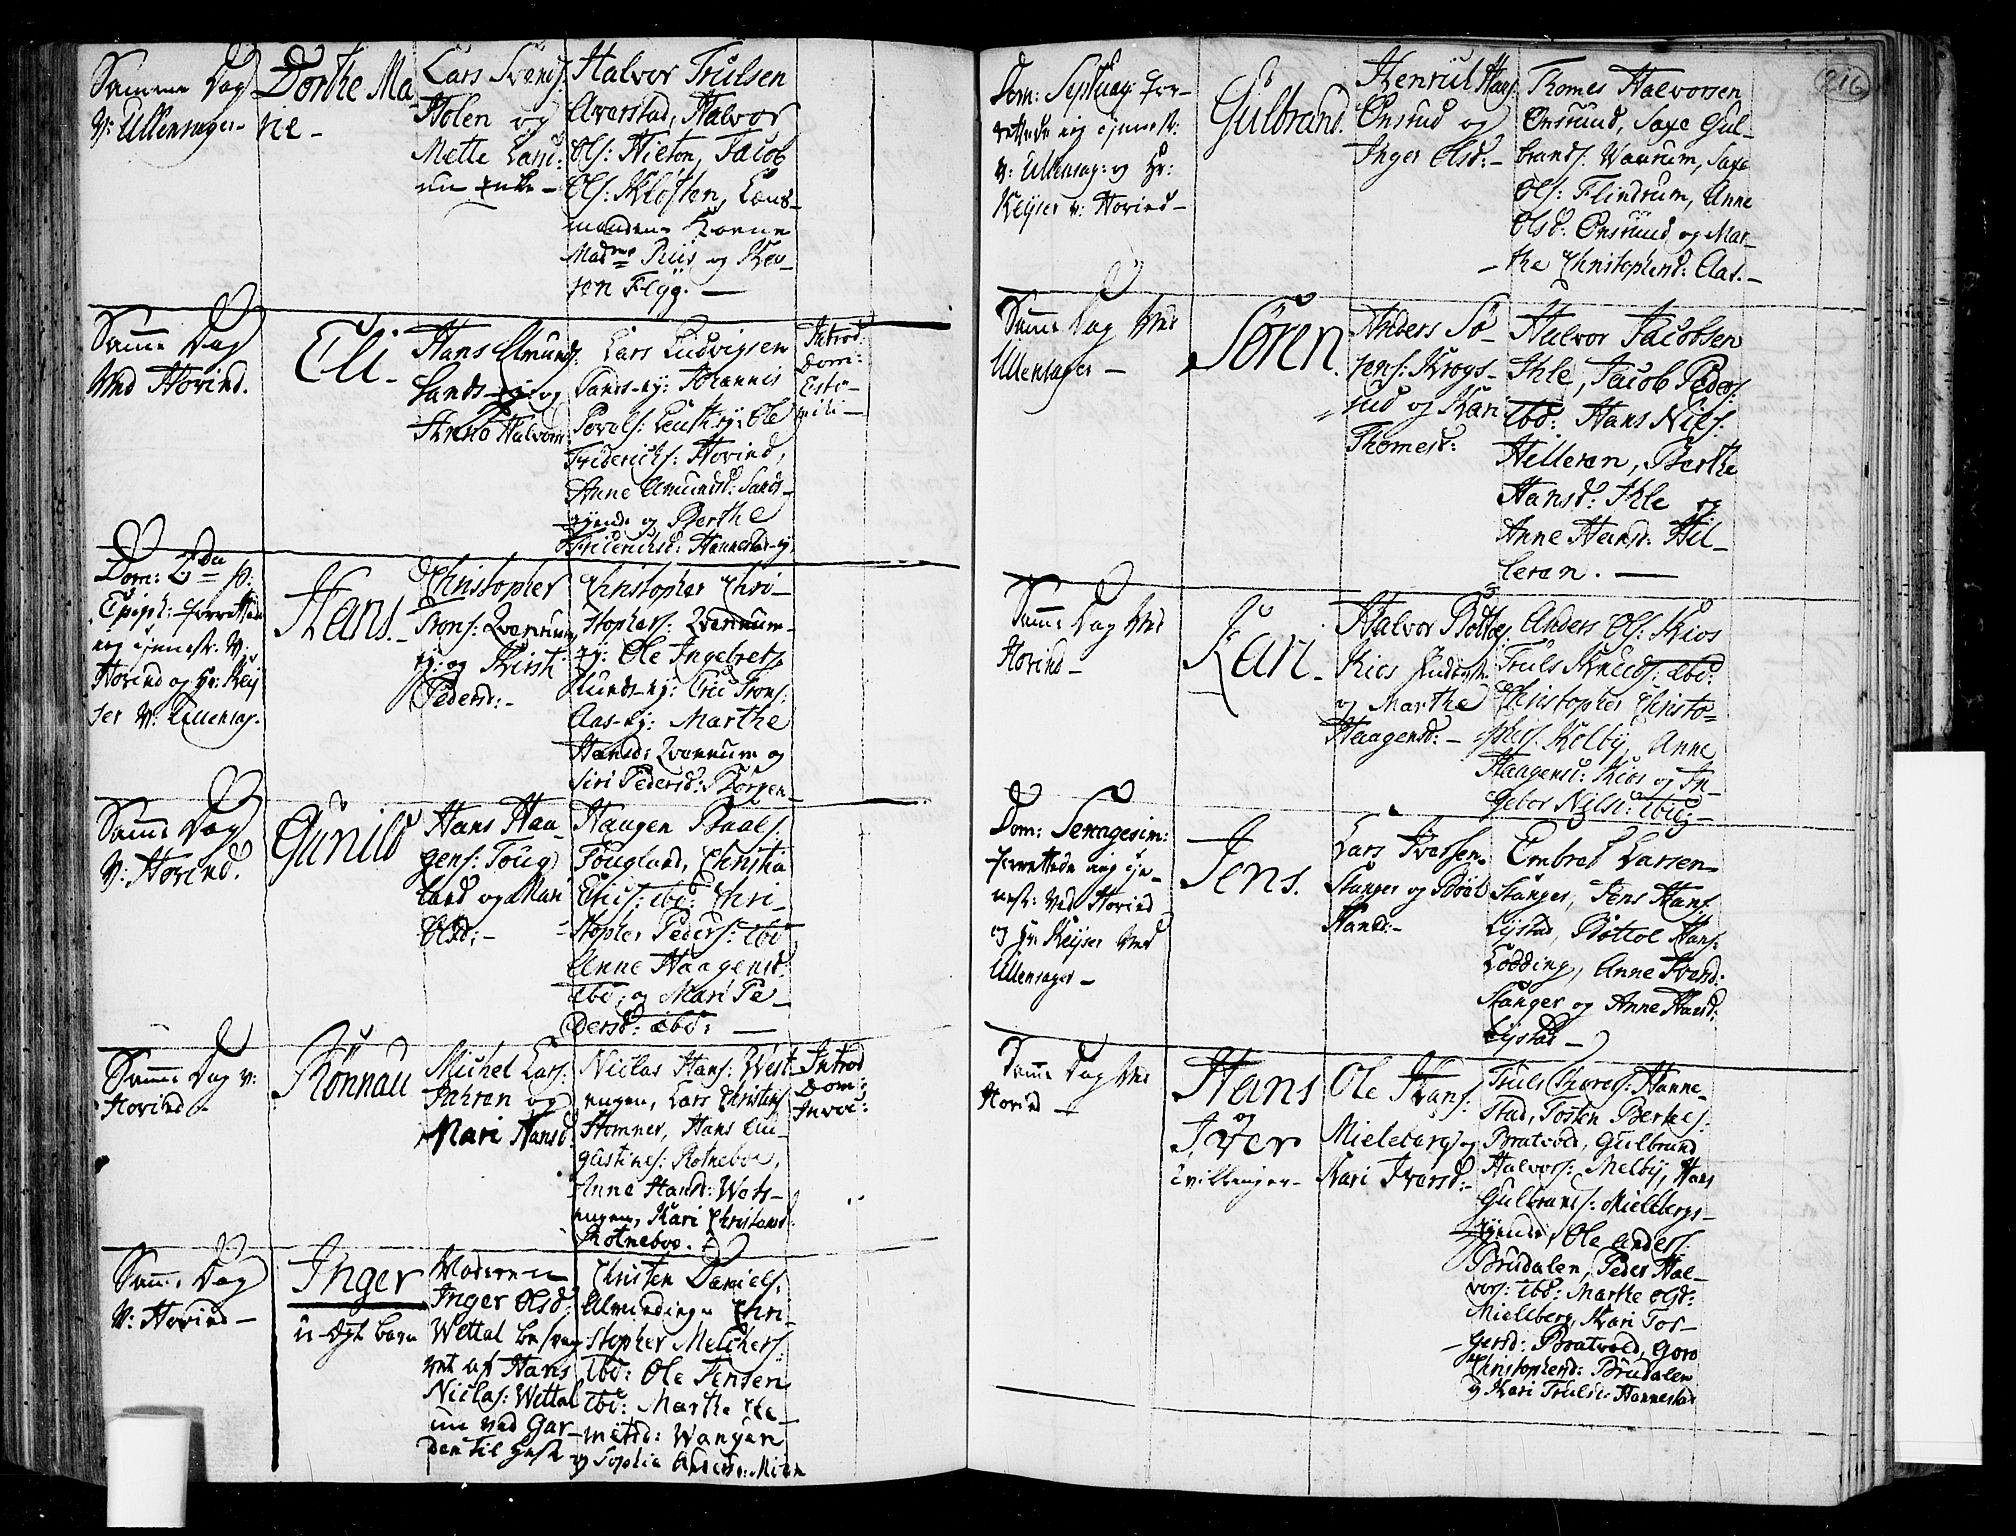 Samme Dag
V: Ullensager
Dorthe Ma-
ne -
Lars Svends:
Holen og
Mette Larsd:
Halvor Trulsen
Averstad, Halvor
Ols: Hieton, Jacob
Ols: Kløften, Lens-
mandens Kone
Madme Riis og
Flyg. -
Samme Dag
Ved Hovind.
Eli -
Hans Amunds:
Sands-ey og
Anne Halvors
Lars Ludvigsen
Sands-ey: Johannis
Povels: ey: Ole
Friderichs: Hovind,
Anne Amundsd: Sands-
eyende og Berthe
Friderichsd: Hannestad-ey
Introd
Dom:
Esto-
mihi -
Dom: 2da p:
Epiph: forrettede
ieg tienest: V:
Hovind og Hr: Key
ser V: Ullensag-
Hans. -
Christopher
Trons: Qvernum
ey: og Kirsti
Pedersd: -
Christopher Chri-
stophers: Qvernum-
ey: Ole Ingebrets:
Lunds-ey: Eric Trons:
Aas-ey: Marthe
Hansd: Qvernum og
Siri Pedersd: Borgen -
Samme Dag
V: Hovind.
Gunild
Hans Haa-
gens: Toug
land og Mari
Olsd: -
Haagen Paals:
Tougland, Christen
ibd: Chri-
stopher Peders: ibd
Anne Haagensd:
ibd: og Mari Pe-
dersd: ibd: -
Samme Dag v:
Hovind -
Rønnau
Michel Lars:
Jahren og
Mari Hansd
Niclas Hans: West-
engen, Lars Christens
Stomner, Hans Au-
gustines: Rotneboe,
Anne Hansd: West-
engen, Kari Christensd:
Rotneboe. -
Introd
Dom:
Invoc:
Samme Dag
V: Hovind -
Inger
u-ægte barn
Moderen
Inger Olsd:
Wettal besvan
gret af Hans
Niclas: Wettal
nu ved Gar-
den til
Christen Daniels:
Almindinge Chri-
stopher Melchers:
ibd: Ole Jensen
ibd: Marthe He-
metsd: Wangen
og Sophia
216
Dom: Septuag: for-
rettede ieg tienest:
v: Ullensag: og Hr:
Keyser v: Hovind -
Gulbrand.
Henrich Hans:
Onsrud og
Inger Olsd: -
Thomes Halvorsen
Onsrud, Saxe Gul-
brands: Waarum, Saxe
Ols: Flindrum, Anne
Olsd: Onsrud og Mar-
- the Christophersd: Aas. -
Samme Dag ved
Ullensager -
Søren.
Anders Sø-
rens: Krogs-
rud og Kari
Thomesd:
Halvor Jacobsen
Ihle, Jacob Peders:
ibd: Hans Niels:
Hilleren, Berthe
Hansd: Ihle og
Anne Hansd: Hil-
leren. -
Samme Dag ved
Hovind -
Kari -
Halvor Bottols:
Kios
og Marthe
Haagensd: -
Anders Ols: Kios
Truls Knuds: ibd:
Christopher Christo-
phers: Kolby, Anne
Haagensd: Kios og In-
gebor Nielsd: ibid -
Dom: Sexagesim:
forrettede ieg tie-
nest: ved Hovind
og Hr: Keyser ved
Ullensager -
Jens.
Lars Iversen
Stanger og Bodel
Hansd: -
Embret Larsen
Stanger, Jens Hans:
Lystad, Bottol Hans:
Lodding, Anne Iversd:
Stanger og Anne Hansd:
Lystad -
Samme Dag ved
Hovind -
Hans
og
Iver
tvillinger -
Ole Hans:
Mieleberg og
Kari Iversd: -
Truls Hanne-
stad, Tosten Berthes:
Bratvold, Gulbrand
Halvors: Melby, Hans
Gulbrands: Mielbergs-
eyende Ole Anders:
Brudalen, Peder Hal-
vors: ibd: Marthe Olsd:
Mielberg, Kari Tor-
gersd: Bratvold, Goro
Christophersd: Brudalen
og Kari Trulsd: Hannestad